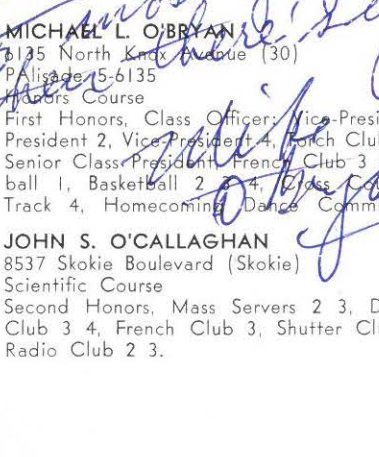 MICHAEL L. O'BRYAN
6135 North Knox Avenue (30)
PAlisade 5-6135
Honors Course
First Honors, Class Officer: Vice-Presi
President 2, Vice-President 4, Torch Clu
Senior Class President French Club 3
ball 1, Basketball 2 3 4, Cross Co
Track 4, Homecoming Dance Commi
Mike
JOHN S. O'CALLAGHAN
8537 Skokie Boulevard (Skokie)
Scientific Course
Second Honors, Mass Servers 2 3, D
Club 3 4, French Club 3, Shutter Cl
Radio Club 2 3.